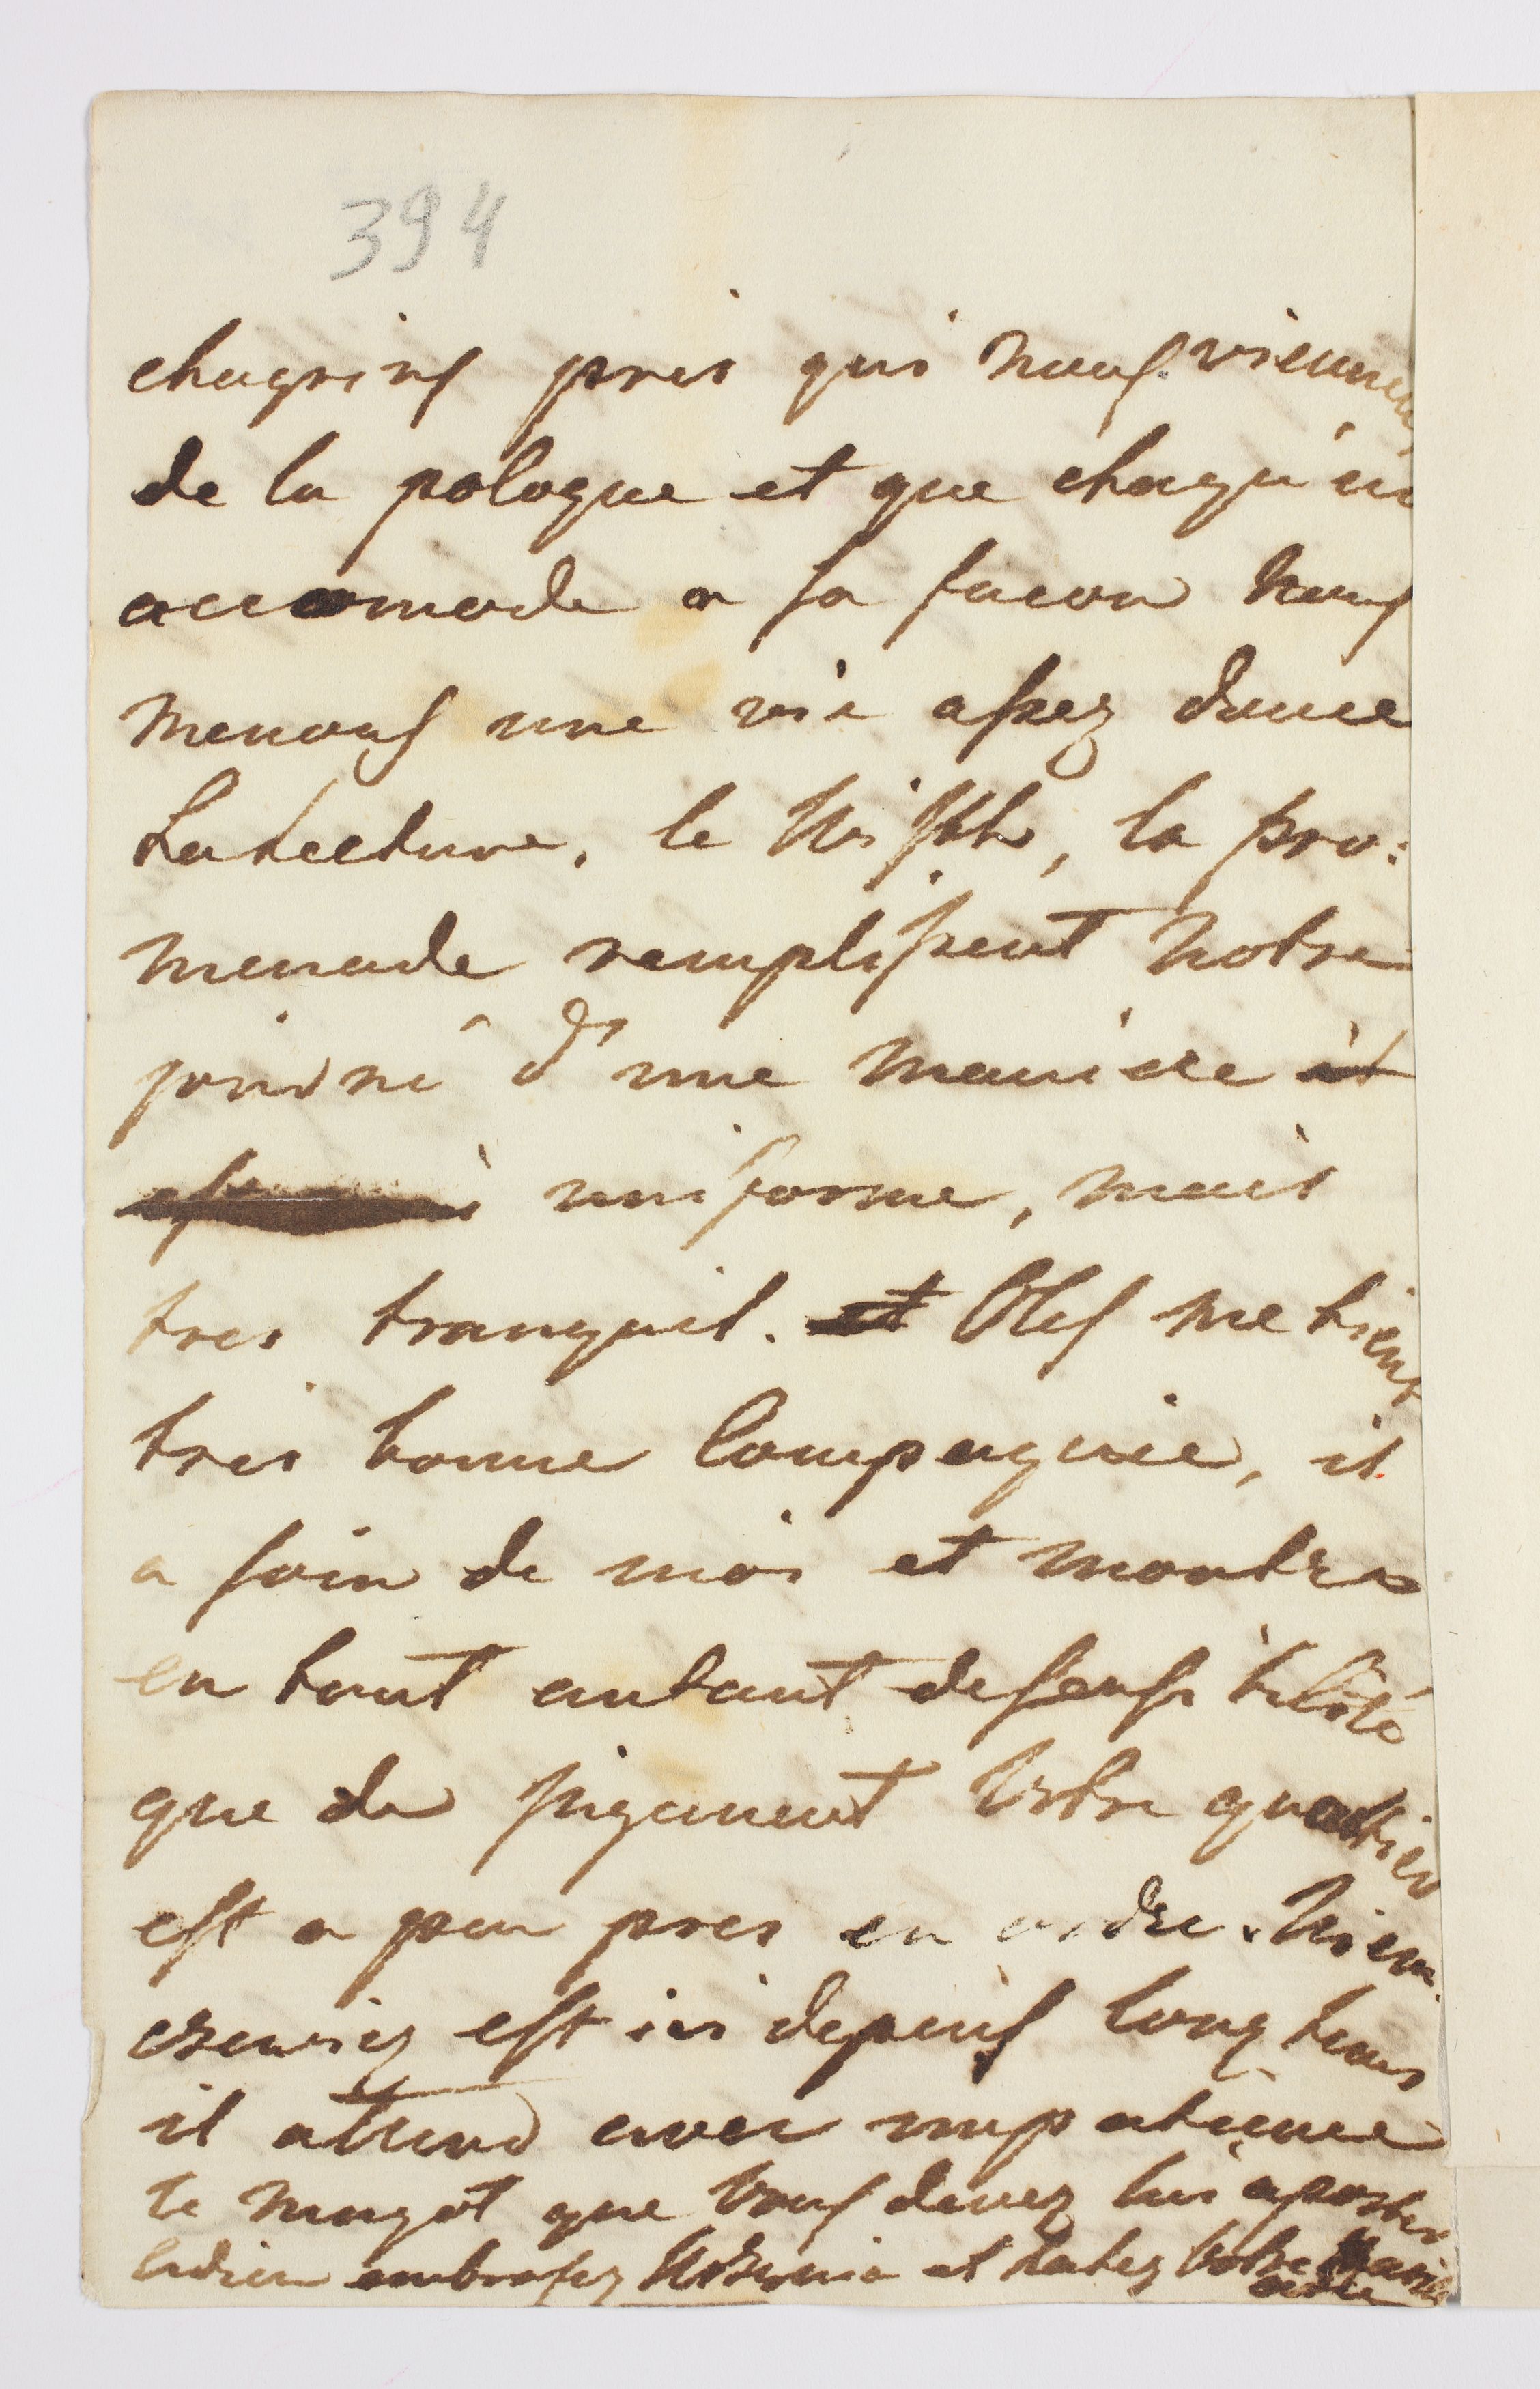 394
chagrins pres qui nous viennent
de la pologne et que chaqu'un
accomode a sa facon nous
menons une vie assez douce
La lecture, le Wisth, la pro:
menade remplissent notre
journé d'une maniere et
uniforme, mais
tres tranquil. et Olès me tient
tres bonne Compagnie, il
a soin de moi et montre
en tout autant de sensibilité
que de jugement Votre quartier
est a peu pres en ordre. Niem
cewicz est ici depuis long tems
il attend avec impatience
le magot que Vous devez lui aporter
adieu embrassez et hatez Votre